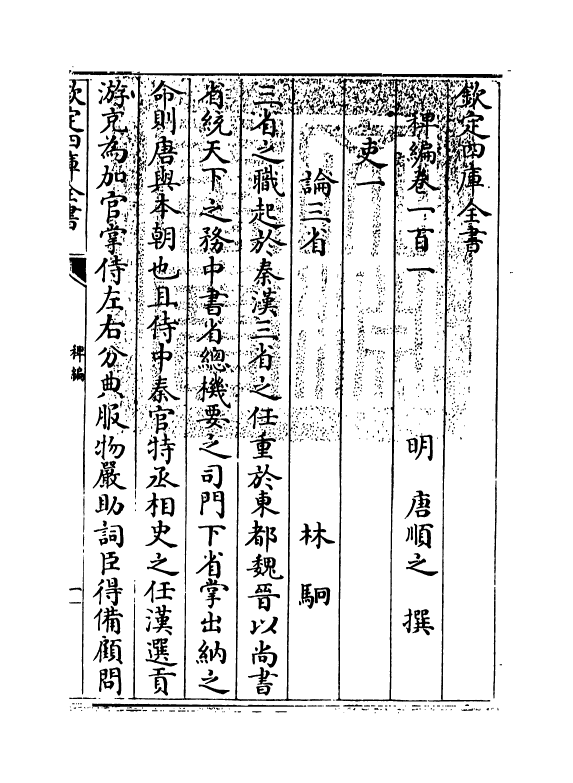 欽定四庫全書
稗編卷一百一
明 唐順之 撰
吏一
論三省 林駉
三省之職起於秦漢三省之任重於東都魏晉以尚書
省統天下之務中書省總機要之司門下省掌出納之
命則唐與本朝也且侍中秦官特丞相史之任漢選貢
游充為加官掌侍左右分典服物嚴助詞臣得備顧問
欽定四庫全書
稗編
一